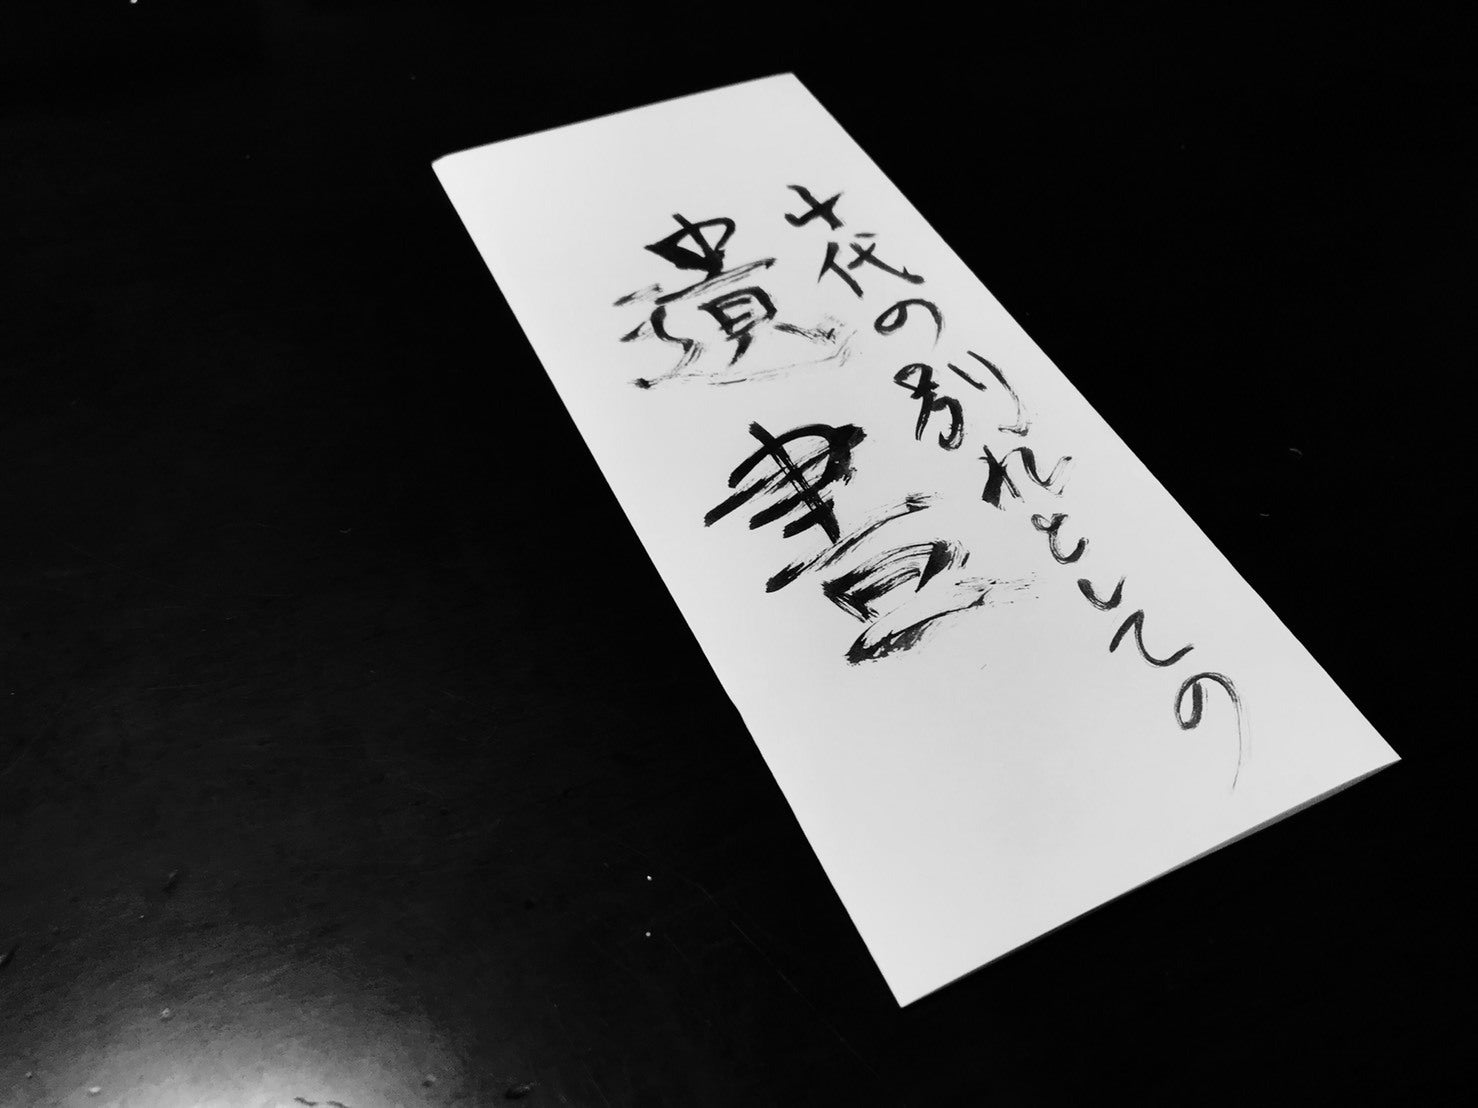 十代の別れとしての
遺書